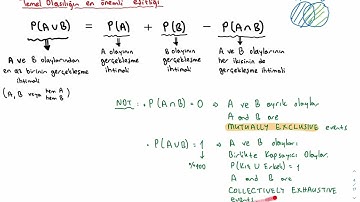 Temel Olasılığın en önemli eşitliği
P(A∪B) = P(A) + P(B) - P(A∩B)
A ve B olaylarından en az birinin gerçekleşme ihtimali
(A, B veya hem A hem B)
A olayının gerçekleşme ihtimali
B olayının gerçekleşme ihtimali
A ve B olaylarının her ikisinin de gerçekleşme ihtimali
NOT: • P(A∩B) = 0 → A ve B ayrık olaylar
A and B are
MUTUALLY EXCLUSIVE events
• P(A∪B) = 1 → A ve B olayları
%100
Birlikte Kapsayıcı Olaylar
P(Kız ∪ Erkek) = 1
A and B are
COLLECTIVELY EXHAUSTIVE
events